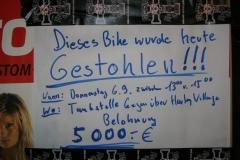 Dieses Bike wurde heute
Gestohlen!!!
Wann: Donnerstag 6.9. zwischen 13:00 u. 15:00
Wo: Tankstelle Gegenüber Harley Village
Belohnung
5000.-€
STOM